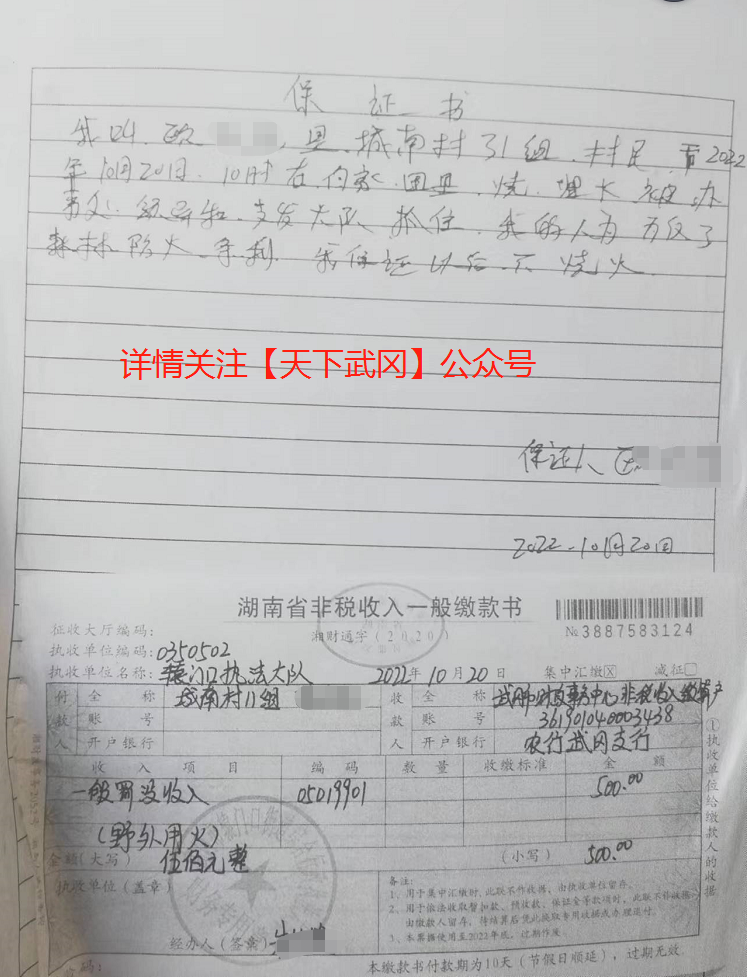 保 证 书
我叫、欧 是、城南村31组、村民 有2022
年10月20日、10时左 烧 办
事处 支发大队 抓住 我的人为 为反了
森林防火 我保证以后不烧火
详情关注【天下武冈】公众号
保证人
2022-10月20日
湖南省非税收入一般缴款书
征收大厅编码：
湘财通字（2020）
№3887583124
执收单位编码：0350502
执收单位名称：辕门口执法大队 2022年10月20日 集中汇缴☒ 减征☐
付款人 全称 城南村11组 收款人 全称 武冈市财政事务中心非税收入
账号 账号 361901040003438
开户银行 开户银行 农行武冈支行
收入项目 编码 数量 收缴标准 金额
一般罚没收入 05019901 500.00
（野外用火）
金额（大写） 伍佰元整 （小写） 500.00
执收单位（盖章）
财务专用章
经办人（签章）
备注：
1、用于集中汇缴时，此联不作收据，由执收单位留存。
2、用于依法收取暂扣款、预收款、保证金等款项时，此联不作收据，
由缴款人留存，待结算后凭此换取专用收据或办理退付。
3、本票据使用至2022年底，过期作废。
本缴款书付款期为10天（节假日顺延），过期无效
①执收单位给缴款人的收据